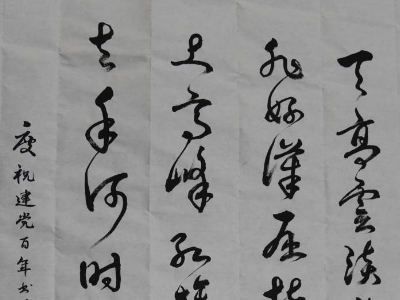 天高云淡
非好汉屈指
上高峰红旗
去年何时
庆祝建党百年书